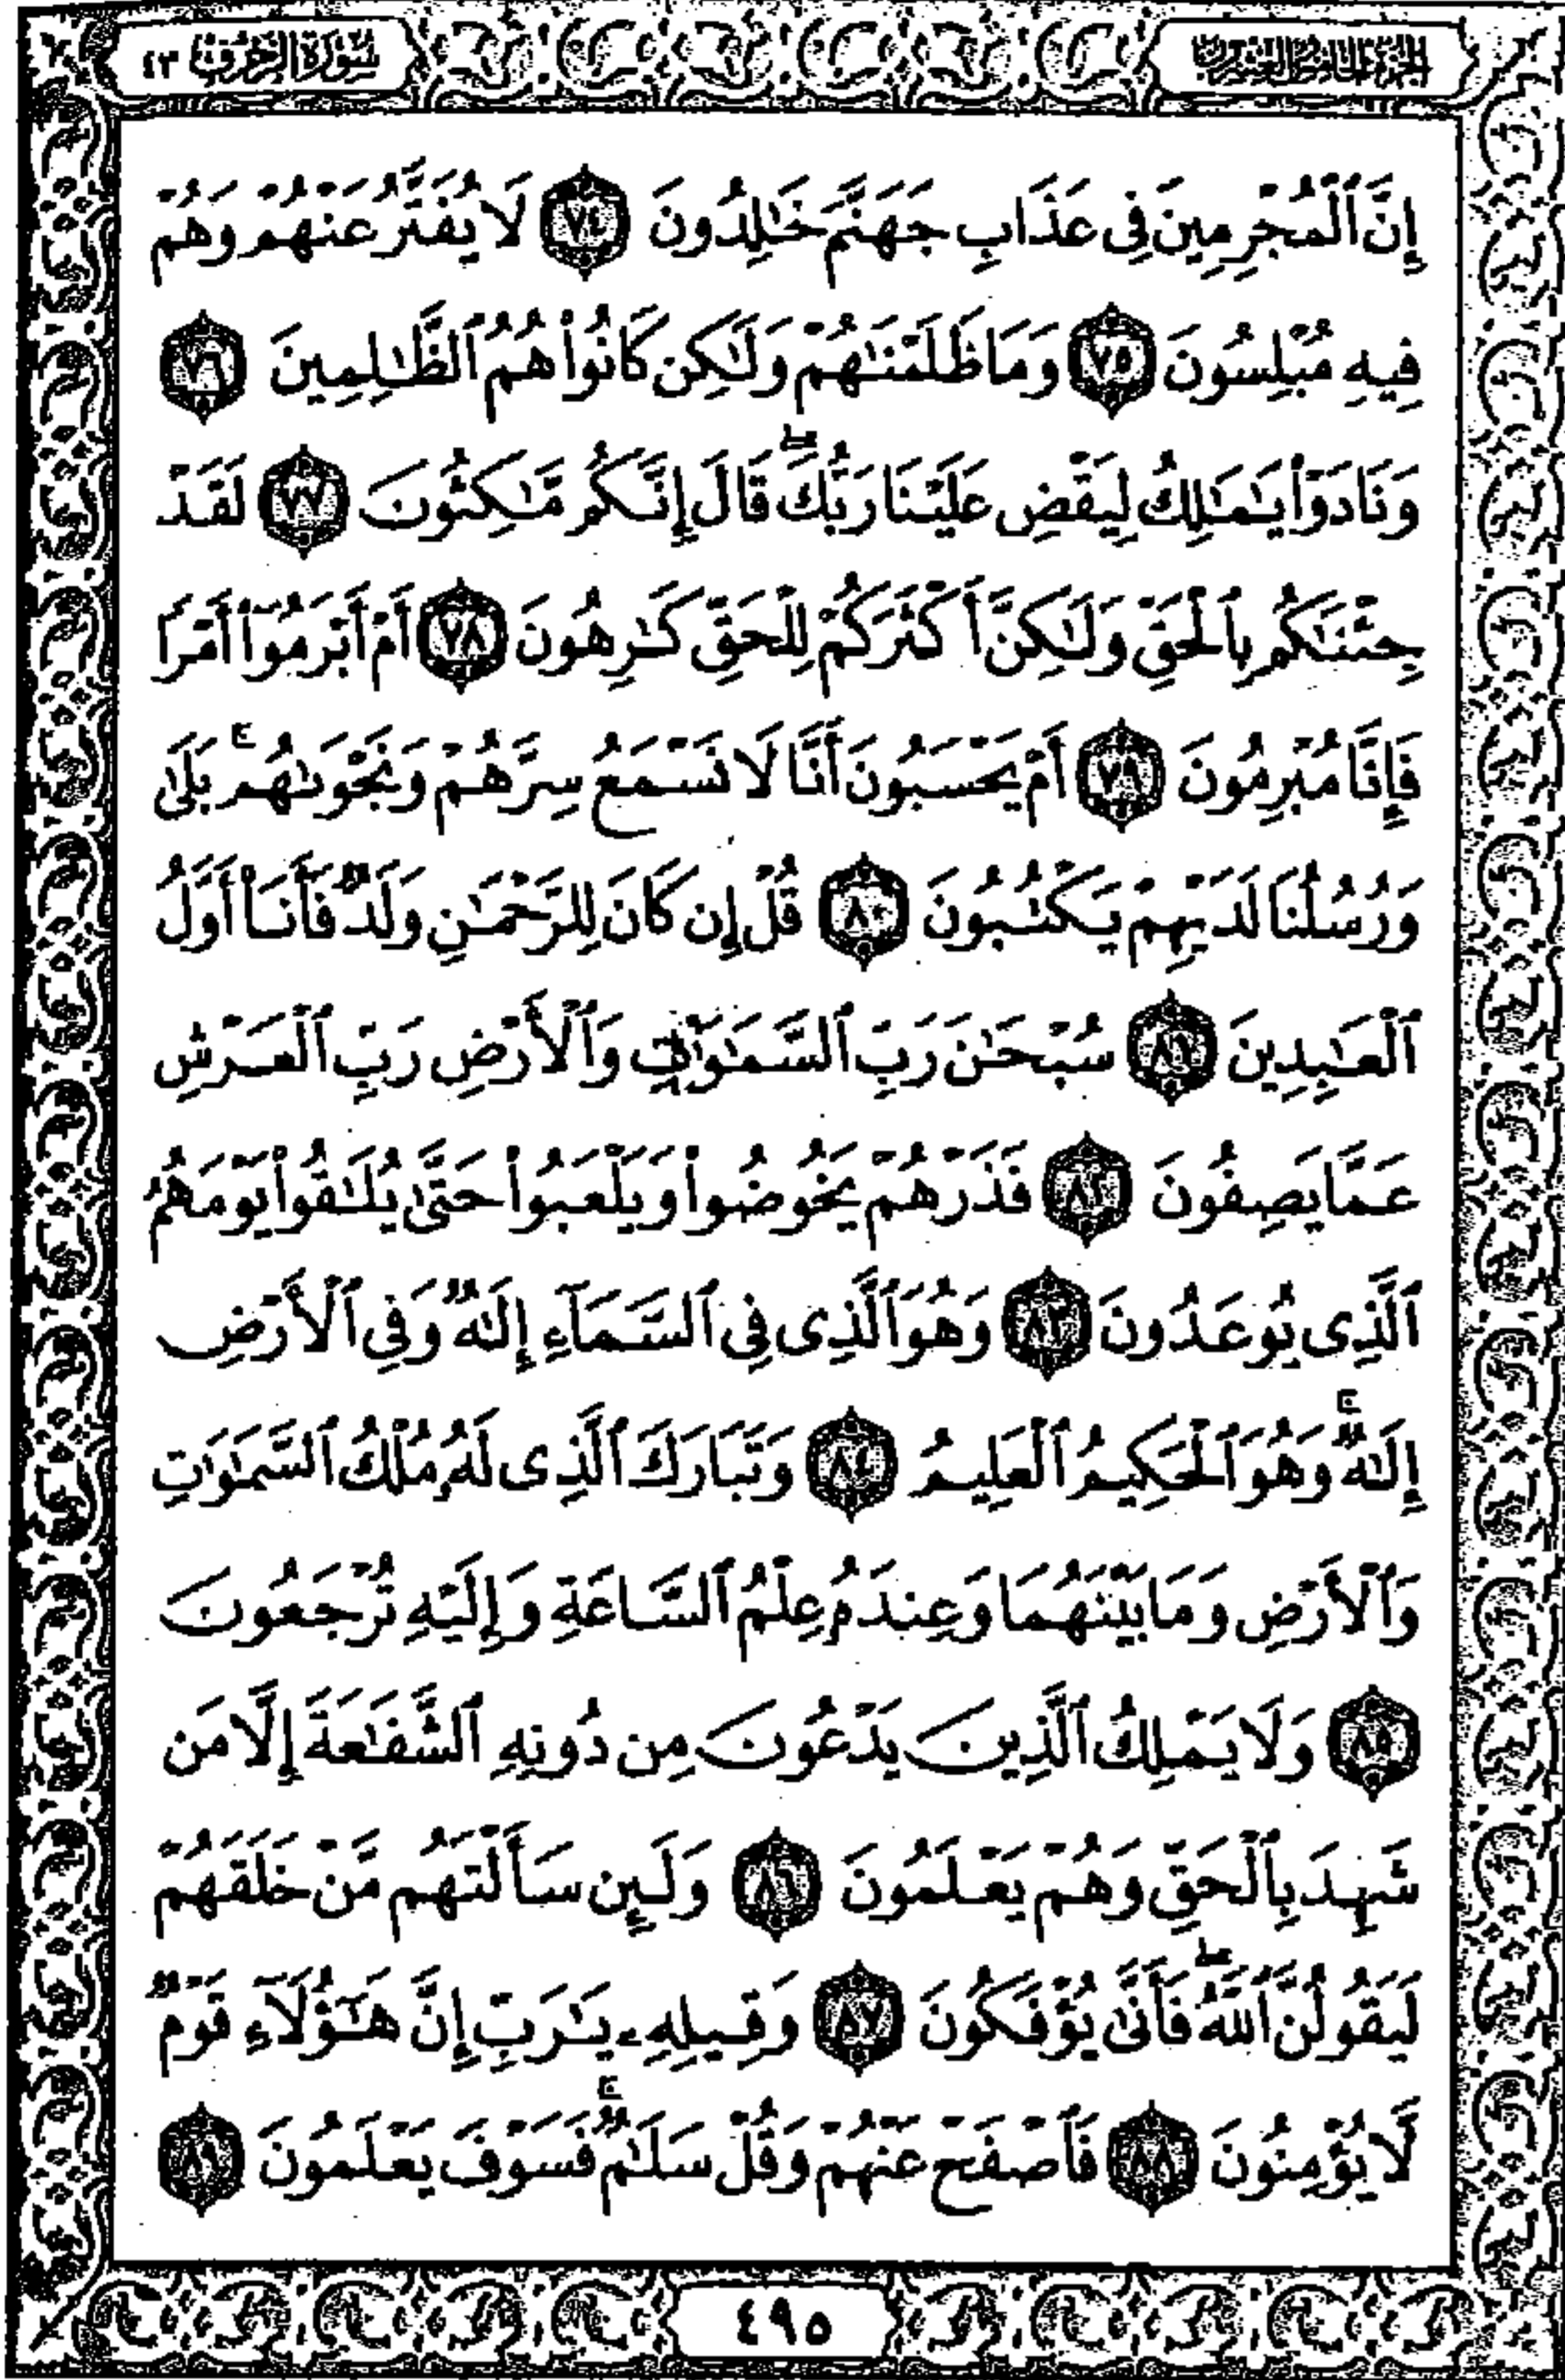 الجزء الخامس والعشرون
سورة الزخرف ٤٣
إِنَّ ٱلْمُجْرِمِينَ فِى عَذَابِ جَهَنَّمَ خَٰلِدُونَ ٧٤ لَا يُفَتَّرُ عَنْهُمْ وَهُمْ
فِيهِ مُبْلِسُونَ ٧٥ وَمَا ظَلَمْنَٰهُمْ وَلَٰكِن كَانُوا۟ هُمُ ٱلظَّٰلِمِينَ ٧٦
وَنَادَوْا۟ يَٰمَٰلِكُ لِيَقْضِ عَلَيْنَا رَبُّكَ ۖ قَالَ إِنَّكُم مَّٰكِثُونَ ٧٧ لَقَدْ
جِئْنَٰكُم بِٱلْحَقِّ وَلَٰكِنَّ أَكْثَرَكُمْ لِلْحَقِّ كَٰرِهُونَ ٧٨ أَمْ أَبْرَمُوٓا۟ أَمْرًا
فَإِنَّا مُبْرِمُونَ ٧٩ أَمْ يَحْسَبُونَ أَنَّا لَا نَسْمَعُ سِرَّهُمْ وَنَجْوَىٰهُم ۚ بَلَىٰ
وَرُسُلُنَا لَدَيْهِمْ يَكْتُبُونَ ٨٠ قُلْ إِن كَانَ لِلرَّحْمَٰنِ وَلَدٌ فَأَنَا۠ أَوَّلُ
ٱلْعَٰبِدِينَ ٨١ سُبْحَٰنَ رَبِّ ٱلسَّمَٰوَٰتِ وَٱلْأَرْضِ رَبِّ ٱلْعَرْشِ
عَمَّا يَصِفُونَ ٨٢ فَذَرْهُمْ يَخُوضُوا۟ وَيَلْعَبُوا۟ حَتَّىٰ يُلَٰقُوا۟ يَوْمَهُمُ
ٱلَّذِى يُوعَدُونَ ٨٣ وَهُوَ ٱلَّذِى فِى ٱلسَّمَآءِ إِلَٰهٌ وَفِى ٱلْأَرْضِ
إِلَٰهٌ ۚ وَهُوَ ٱلْحَكِيمُ ٱلْعَلِيمُ ٨٤ وَتَبَارَكَ ٱلَّذِى لَهُۥ مُلْكُ ٱلسَّمَٰوَٰتِ
وَٱلْأَرْضِ وَمَا بَيْنَهُمَا وَعِندَهُۥ عِلْمُ ٱلسَّاعَةِ وَإِلَيْهِ تُرْجَعُونَ
٨٥ وَلَا يَمْلِكُ ٱلَّذِينَ يَدْعُونَ مِن دُونِهِ ٱلشَّفَٰعَةَ إِلَّا مَن
شَهِدَ بِٱلْحَقِّ وَهُمْ يَعْلَمُونَ ٨٦ وَلَئِن سَأَلْتَهُم مَّنْ خَلَقَهُمْ
لَيَقُولُنَّ ٱللَّهُ ۖ فَأَنَّىٰ يُؤْفَكُونَ ٨٧ وَقِيلِهِۦ يَٰرَبِّ إِنَّ هَٰٓؤُلَآءِ قَوْمٌ
لَّا يُؤْمِنُونَ ٨٨ فَٱصْفَحْ عَنْهُمْ وَقُلْ سَلَٰمٌ ۚ فَسَوْفَ يَعْلَمُونَ ٨٩
٤٩٥